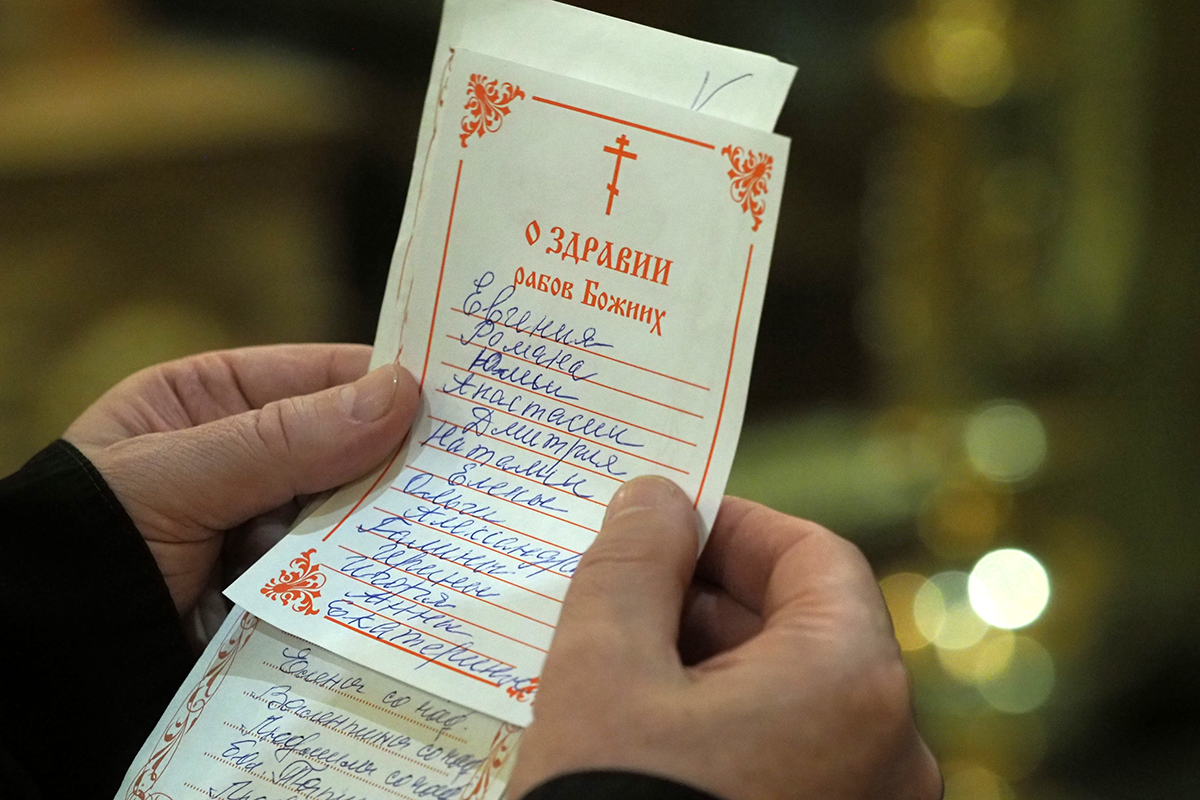 О ЗДРАВИИ
рабов Божиих
Евгения
Романа
Юлии
Анастасии
Дмитрия
Наталии
Елены
Ольги
Александра
Галины
Ирины
Игоря
Анны
Екатерины
Елены со чад.
Валентины со чад.
Людмилы со чад.